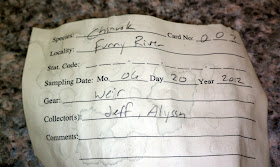 Species: Chinook Card No: 002
Locality: Funny River
Stat. Code:
Sampling Date: Mo. 06 Day 20 Year 2012
Gear: weir
Collector(s): Jeff, Alyssa
Comments: